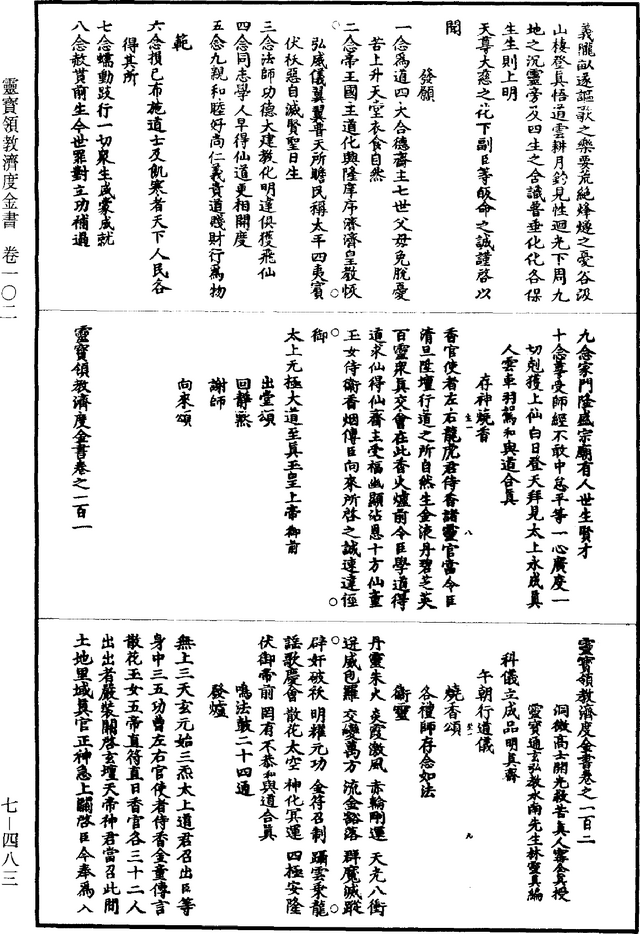 義隴畝遂謳歌之樂要荒絶烽燧之憂谷汲
山棲登真悟道雲耕月釣見性迴光下周九
地之沉靈旁及四生之含識普垂化化各保
生生則上明
天尊大慈之化下副臣等皈命之誠謹啓以
聞
發願
一念爲道四大合德齋主七世父母免脫憂
苦上升天堂衣食自然
二念帝王國主道化興隆庠序濟濟皇教恢
弘威儀翼翼普天所瞻民稱太平四夷賓
伏袄惡自滅賢聖日生
三念法師功德大建教化明達俱獲飛仙
四念同志學人早得仙道更相開度
五念九親和睦好尚仁義貴道賤財行爲物
範
六念損己布施道士及飢寒者天下人民各
得其所
七念蠕動跂行一切衆生咸蒙成就
八念赦貰前生今世罪對立功補過
九念家門隆盛宗廟有人世生賢才
十念尊受師經不敢中怠平等一心廣度一
切剋獲上仙白日登天拜見太上永成真
人雲車羽駕和與道合真
存神燒香
香官使者左右龍虎君侍香諸靈官當令臣
清旦陞壇行道之所自然生金液丹碧芝英
百靈衆真交會在此香火爐前令臣學道得
道求仙得仙齋主受福幽顯沾恩十方仙童
玉女侍衛香烟傳臣向來所啓之誠速達徑
御
太上无極大道至真玉皇上帝御前
出堂頌
回靜默
謝師
向來頌
靈寶領教濟度金書卷之一百一
靈寶領教濟度金書卷之一百二
洞微高士開光救苦真人甯全真授
靈寶通玄弘教水南先生林靈真編
科儀立成品明真齋
午朝行道儀
燒香頌
各禮師存念如法
衛靈
丹靈朱火 炎霞激風 赤輪剛運 天光八衝
迸威包羅 交變萬方 流金豁落 群魔滅蹤
辟奸破袄 明耀元功 金符召制 躡雲乘龍
謡歌慶會 散花太空 神化冥運 四極安隆
伏御帝前 罔有不恭和與道合真
鳴法鼓二十四通
發爐
無上三天玄元始三炁太上道君召出臣等
身中三五功曹左右官使者侍香金童傳言
散花玉女五帝直符直日香官各三十二人
出出者嚴裝關啓玄壇天帝神君當召此間
土地里域真官正神急上關啓臣今奉爲入
靈寶領教濟度金書 卷一〇二
七—四八三